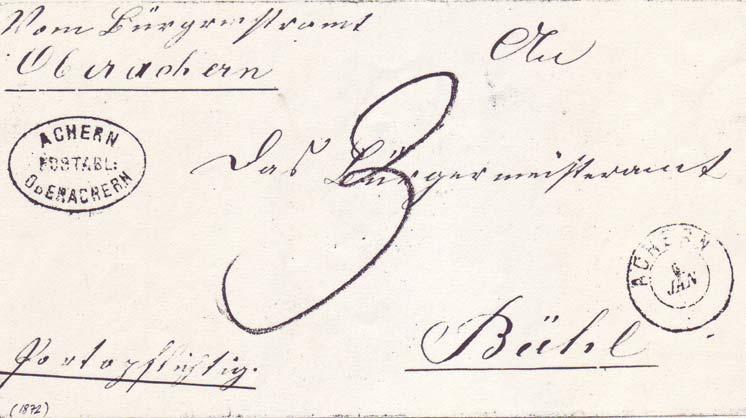 Vom Bürgermstramt
Oberachern
An
ACHERN
POSTABL:
OBERACHERN
das Bürgermeisteramt
3
ACHERN
6
JAN
Bühl
Portopflichtig.
(1872)